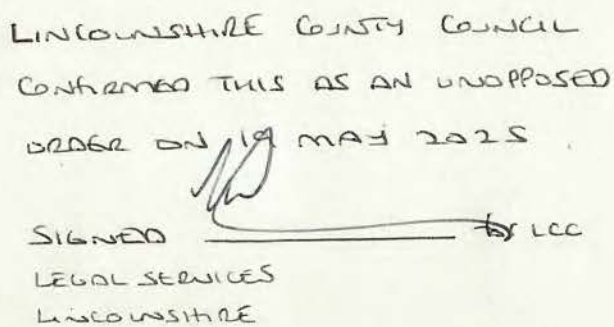 LINCOLNSHIRE COUNTY COUNCIL
CONFIRMED THIS AS AN UNOPPOSED
ORDER ON 19 MAY 2025
SIGNED for LCC
LEGAL SERVICES
LINCOLNSHIRE